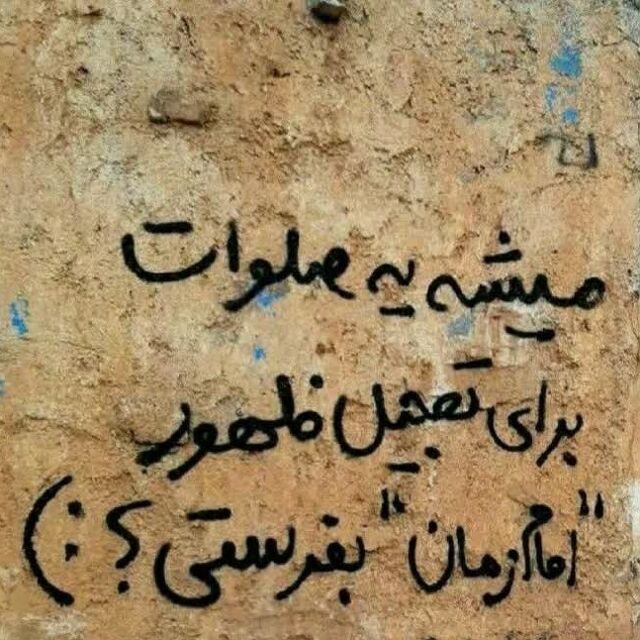 میشه یه صلوات
برای تعجیل ظهور
"امام زمان" بفرستی؟ :)